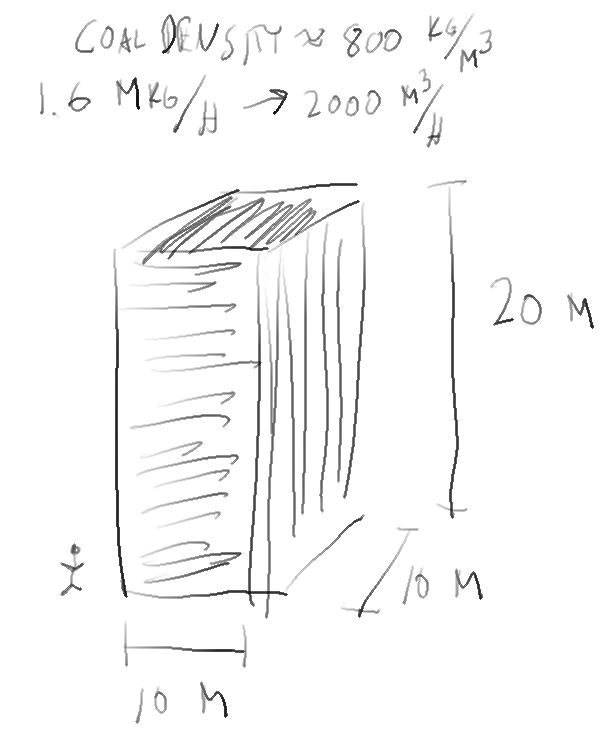 COAL DENSITY ≈ 800 KG/M³
1.6 MKG/H → 2000 M³/H
20 M
10 M
10 M